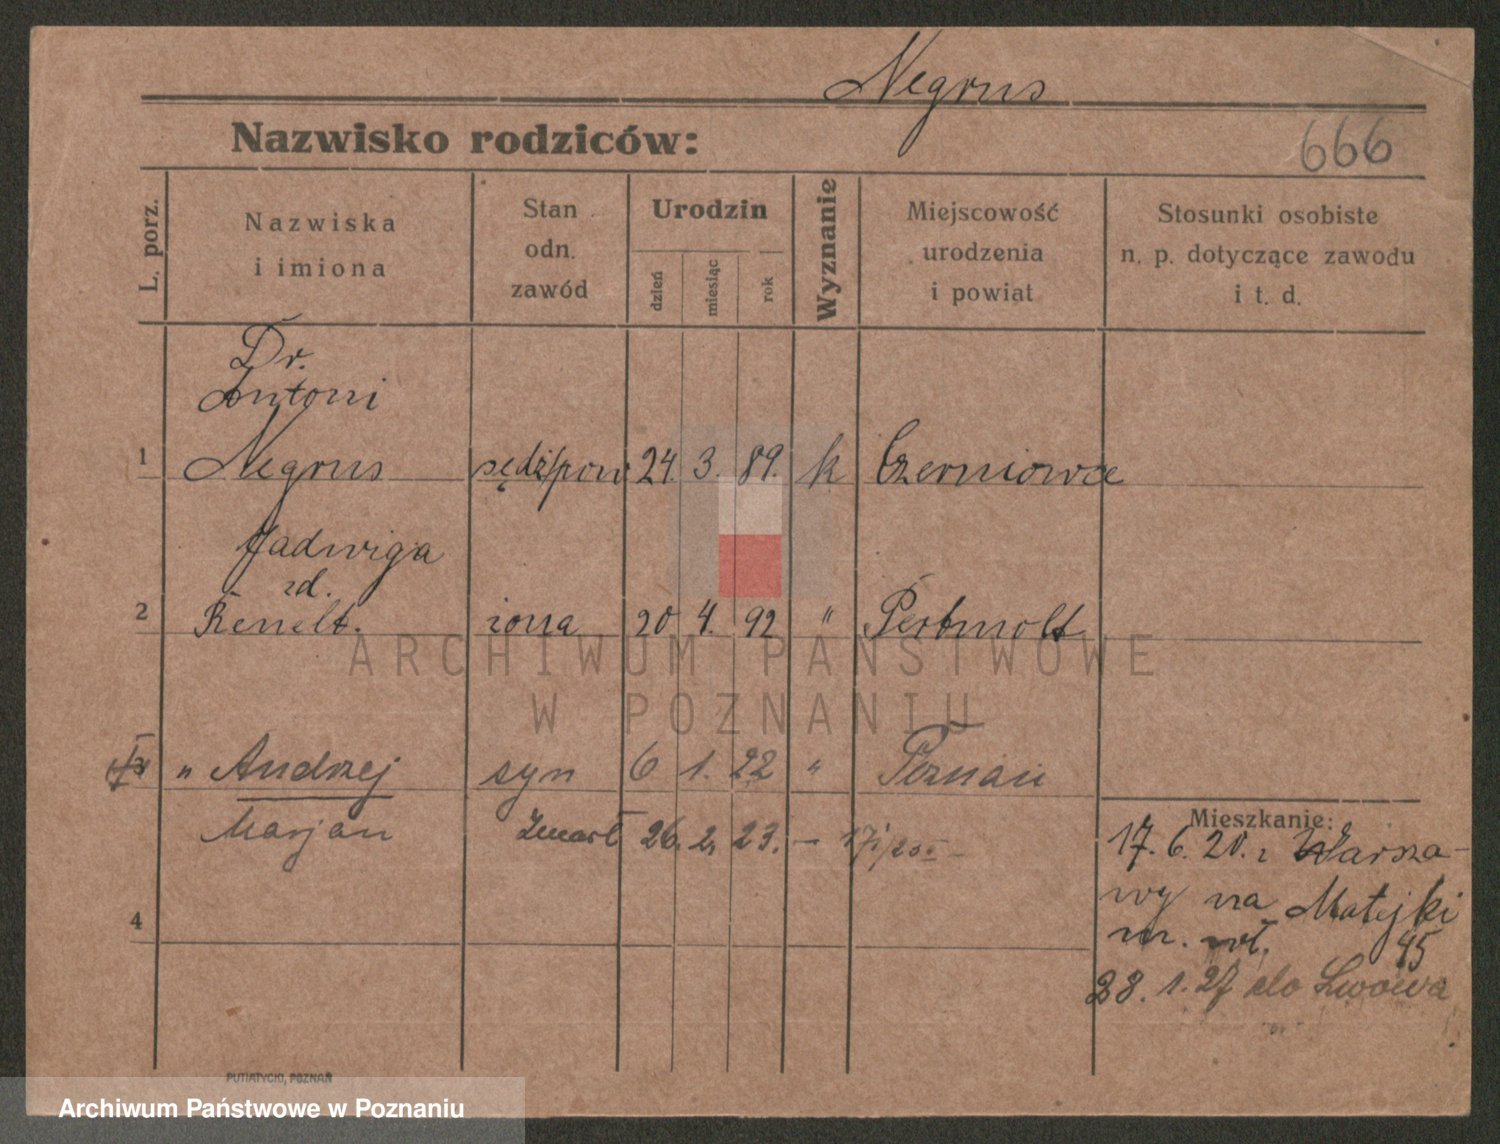 Negrus
Nazwisko rodziców:
666
L. porz.
Nazwiska
i imiona
Stan
odn.
zawód
Urodzin
dzień
miesiąc
rok
Wyznanie
Miejscowość
urodzenia
i powiat
Stosunki osobiste
n. p. dotyczące zawodu
i t. d.
Dr.
Antoni
1 Negrus sędzi/pow 24. 3. 89. k Czerniowce
Jadwiga
zd.
2 żona 20 4. 92 "
ARCHIWUM PAŃSTWOWE
W POZNANIU
3 " Andrzej syn 6 1. 22 " Poznań
Marjan Zmarł 26. 2. 23. –
Mieszkanie:
17. 6. 20. z Warsza-
wy na Matejki
nr. 45
4
28. 1. 27 do Lwowa
PUTIATYCKI, POZNAŃ
Archiwum Państwowe w Poznaniu